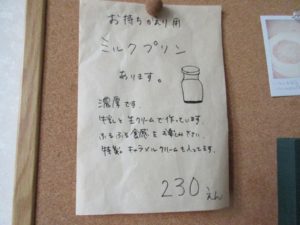 お持ちかえり用
ミルクプリン
あります。
濃厚です。
牛乳と生クリームで作っています。
ふるふる食感をお楽しみ下さい。
特製。キャラメルクリームも入ってます。
230えん